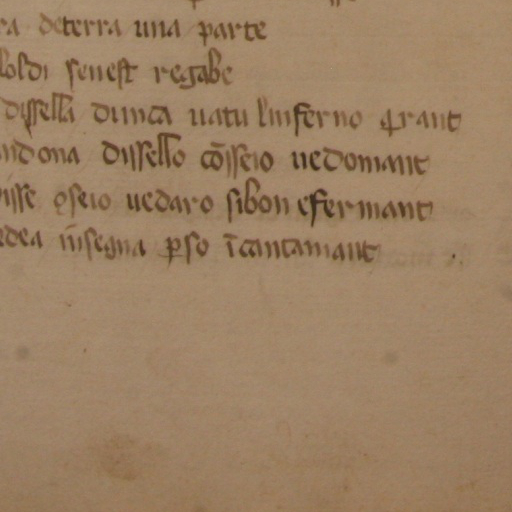 ra deterra una parte
loldi senest regabe
disella dunca uatu linferno qrant
ndona dissello cōsseio uedomant
isse ꝯseio uedaro sibon efermant
edea īnsegna ꝑso īcantamant